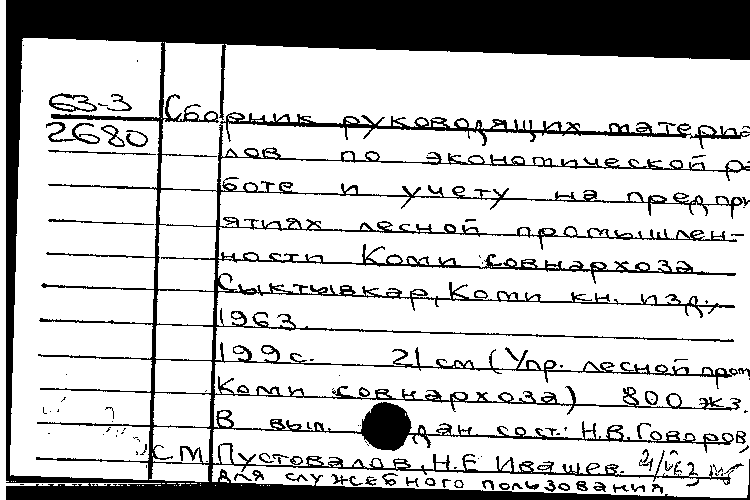 63-3
2680
Сборник руководящих материа
лов по экономической ра
боте и учету на предпри
ятиях лесной промышлен-
ности Коми совнархоза.
Сыктывкар, Коми кн. изд.,
1963.
199 с. 21 см (Упр. лесной пром
Коми совнархоза) 800 экз.
В вып. дан сост.: Н.В. Говоров,
С.М. Пустовалов, Н.Е Ивашев.
Для служебного пользования.